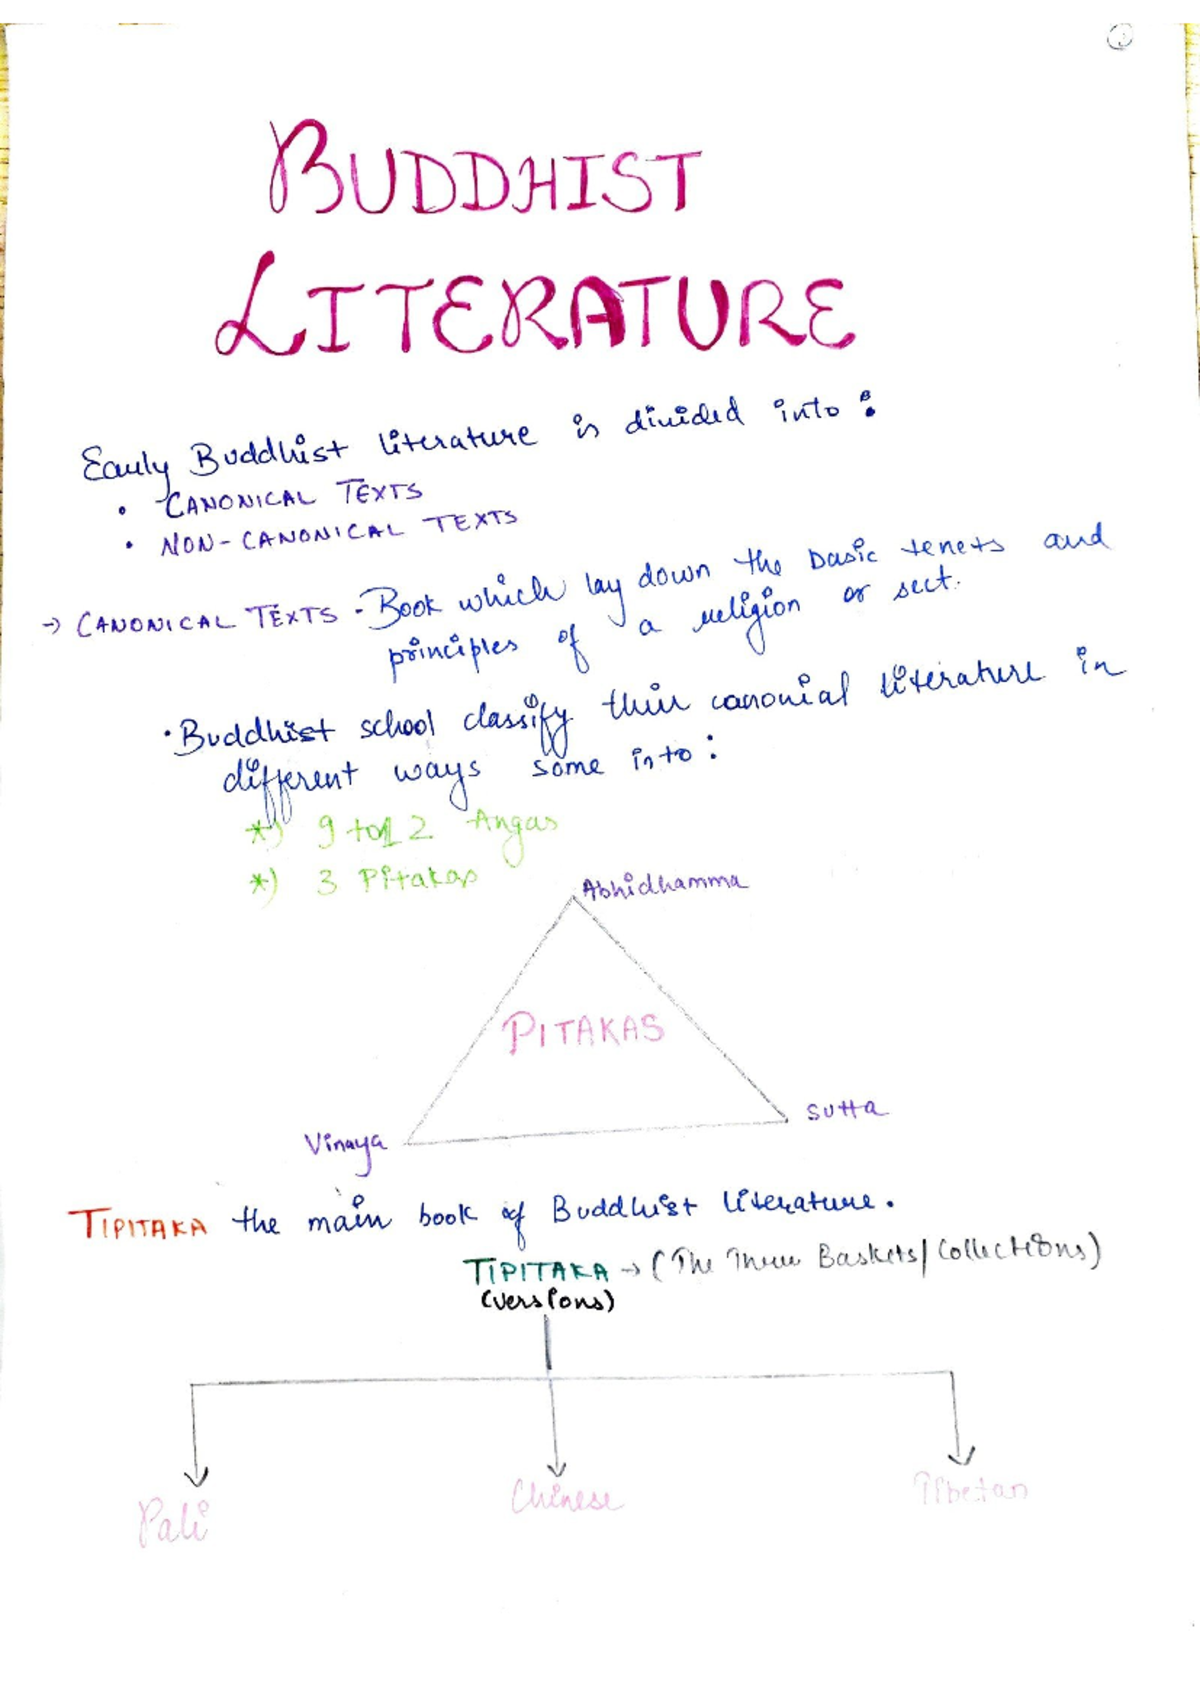 BUDDHIST
LITERATURE
Early Buddhist literature is divided into :
• CANONICAL TEXTS
• NON-CANONICAL TEXTS
→ CANONICAL TEXTS - Book which lay down the basic tenets and
principles of a religion or sect.
• Buddhist school classify their canonial literature in
different ways some into :
*) 9 to 12 Angas
*) 3 Pitakas
Abhidhamma
PITAKAS
Vinaya
Sutta
TIPITAKA the main book of Buddhist literature.
TIPITAKA → (The Three Baskets/Collections)
(versions)
Pali
Chinese
Tibetan